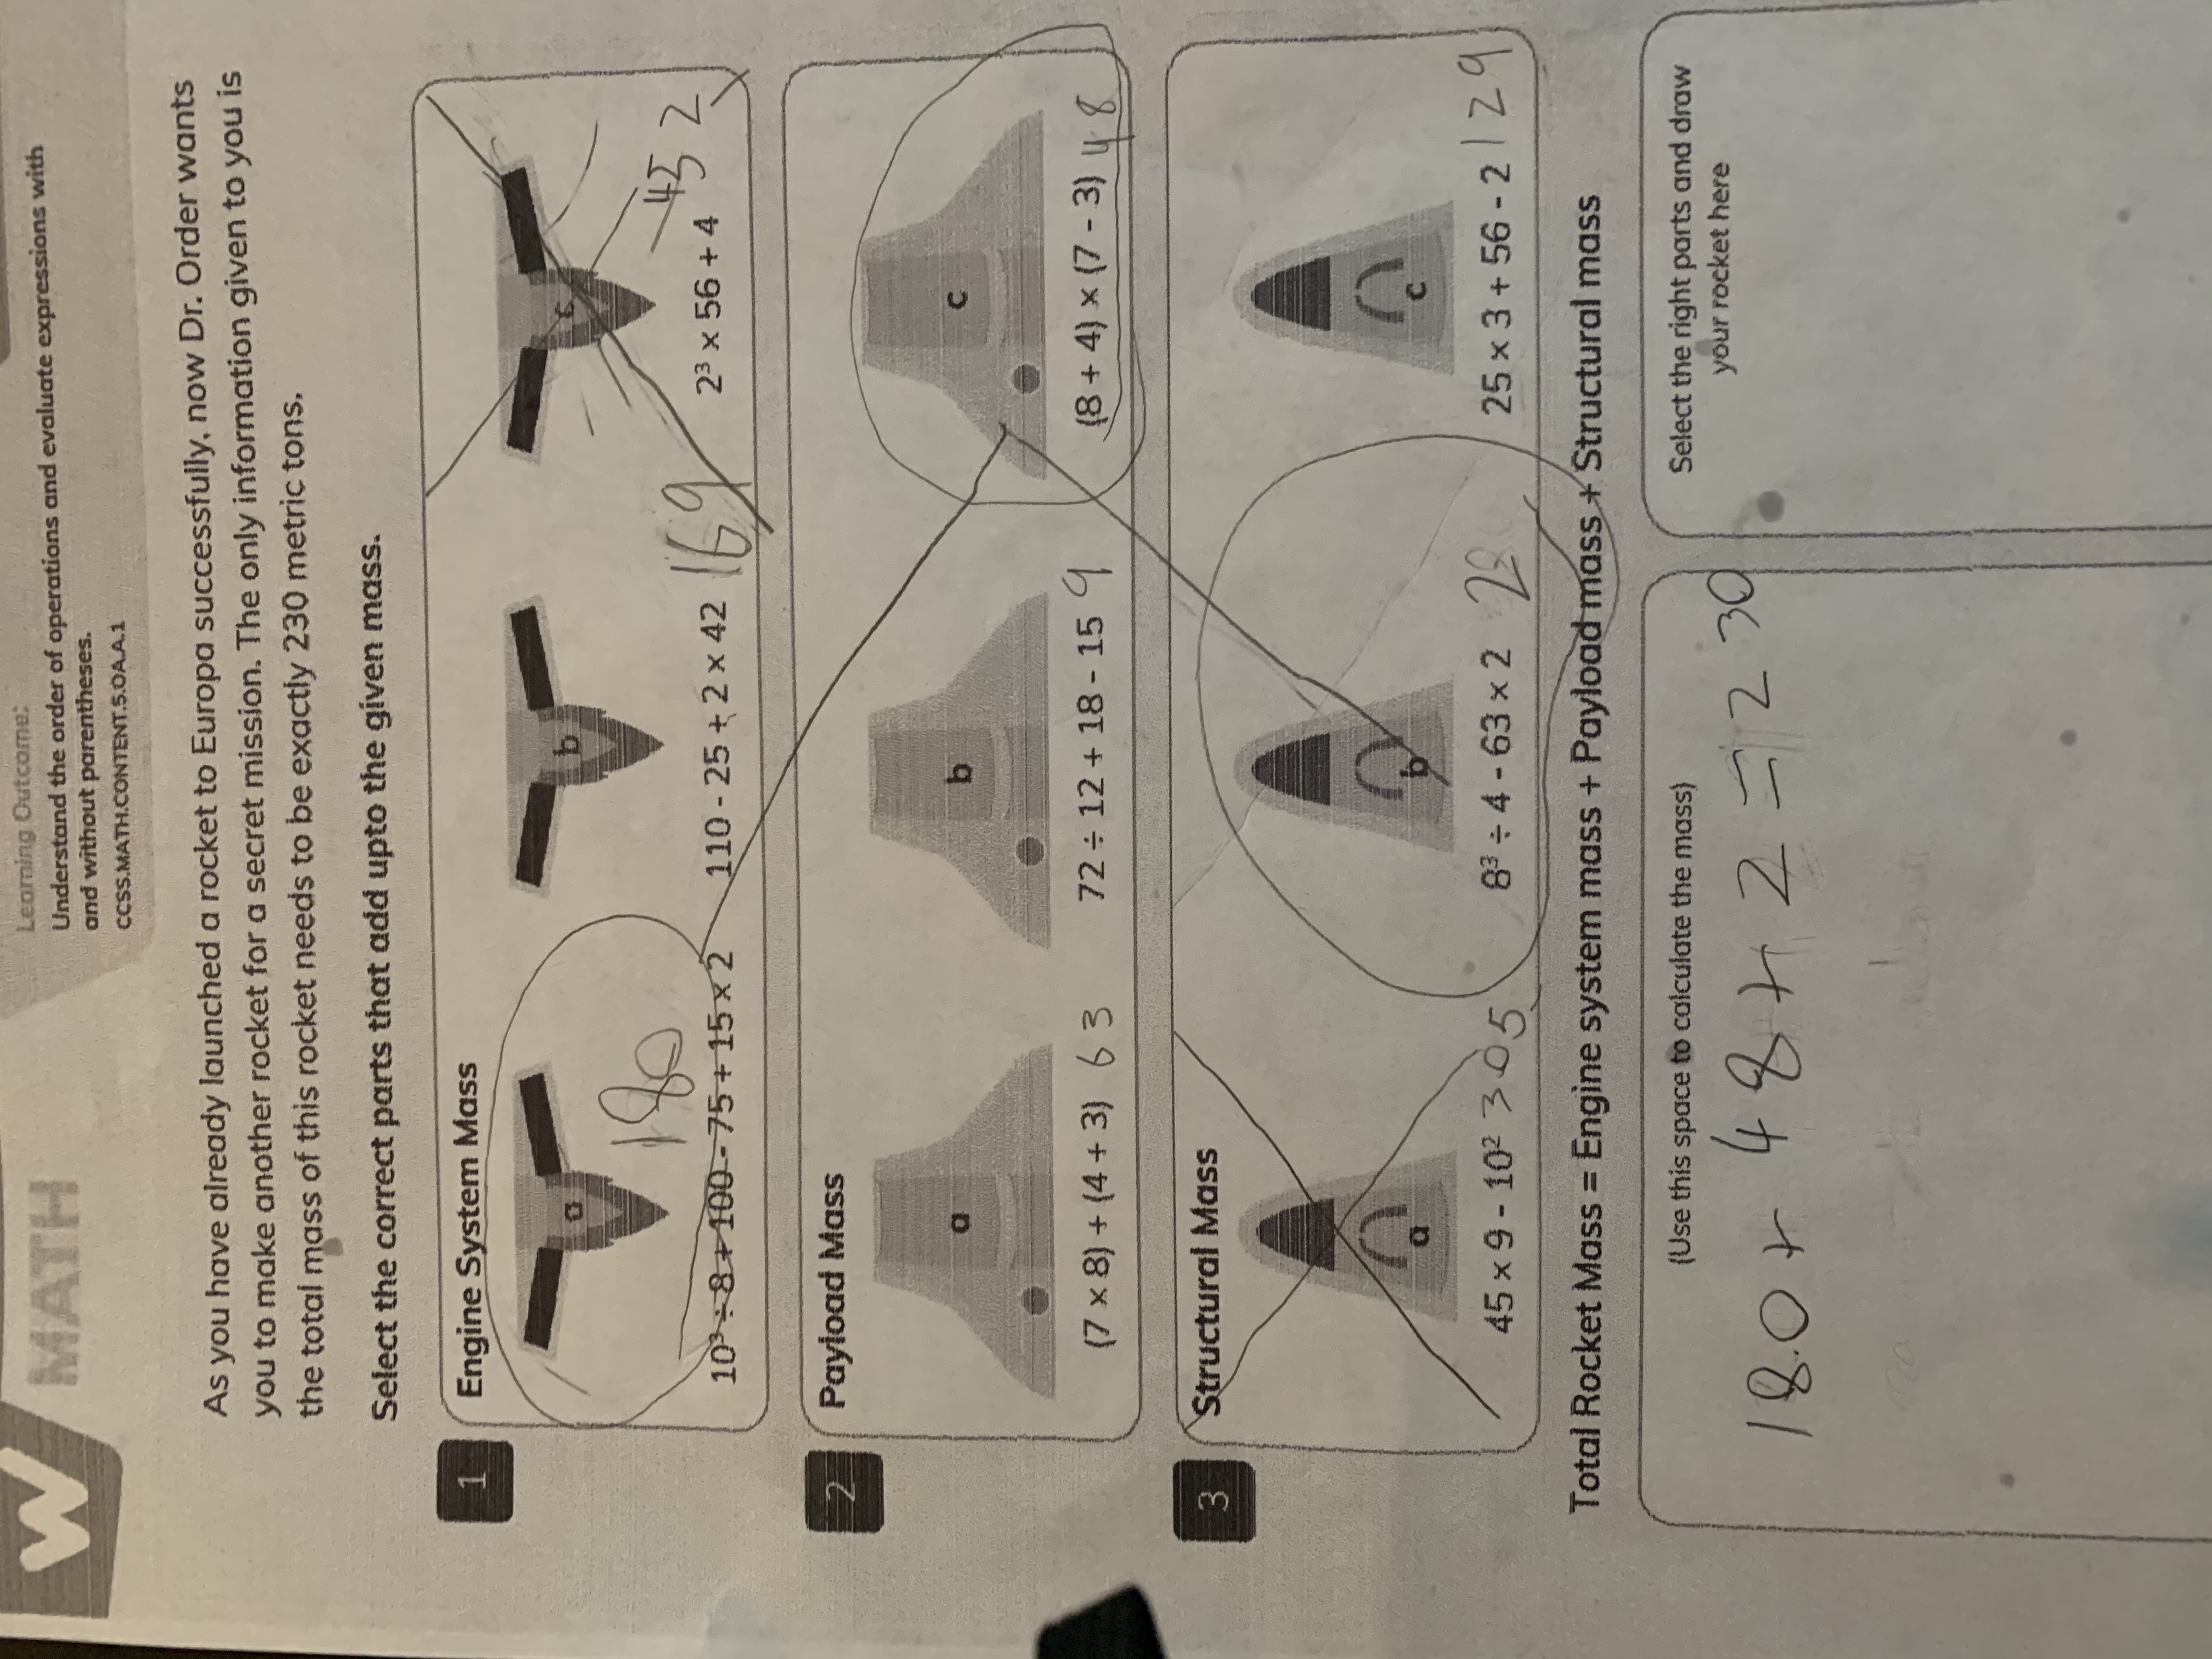 W MATH
Learning Outcome:
Understand the order of operations and evaluate expressions with
and without parentheses.
CCSS.MATH.CONTENT.5.OA.A.1
As you have already launched a rocket to Europa successfully, now Dr. Order wants
you to make another rocket for a secret mission. The only information given to you is
the total mass of this rocket needs to be exactly 230 metric tons.
Select the correct parts that add upto the given mass.
1 Engine System Mass
a b c
180 169 452
10³ ÷ 8 + 100 - 75 + 15 x 2 110 - 25 + 2 x 42 2³ x 56 + 4
2 Payload Mass
a b c
(7 x 8) + (4 + 3) 63 72 ÷ 12 + 18 - 15 9 (8 + 4) x (7 - 3) 48
3 Structural Mass
a b c
45 x 9 - 10² 305 8³ ÷ 4 - 63 x 2 2 25 x 3 + 56 - 2 129
Total Rocket Mass = Engine system mass + Payload mass + Structural mass
(Use this space to calculate the mass)
180 + 48 + 2 = 230
Select the right parts and draw
your rocket here